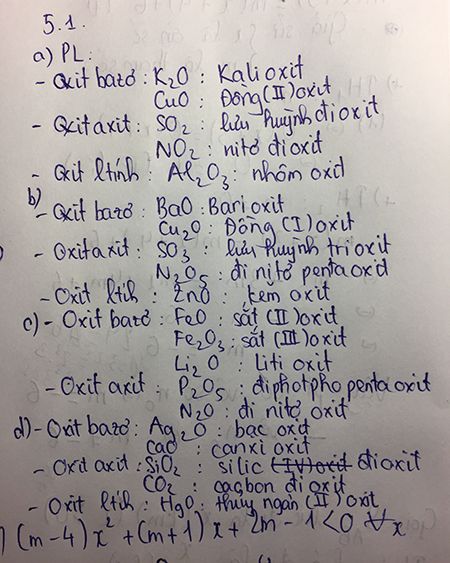 5.1.
a) PL:
- Oxit bazơ: K₂O: Kali oxit
CuO: Đồng (II) oxit
- Oxit axit: SO₂: lưu huỳnh đi oxit
NO₂: nitơ đi oxit
- Oxit ltính: Al₂O₃: nhôm oxit
b)
- Oxit bazơ: BaO: Bari oxit
Cu₂O: Đồng (I) oxit
- Oxit axit: SO₃: lưu huỳnh tri oxit
N₂O₅: đi nitơ penta oxit
- Oxit ltih: ZnO: kẽm oxit
c) - Oxit bazơ: FeO: sắt (II) oxit
Fe₂O₃: sắt (III) oxit
Li₂O: liti oxit
- Oxit axit: P₂O₅: điphotpho penta oxit
N₂O: đi nitơ oxit
d) - Oxit bazơ: Ag₂O: bạc oxit
CaO: canxi oxit
- Oxit axit: SiO₂: silic (IV) oxit đi oxit
CO₂: cacbon đi oxit
- Oxit ltih: HgO: thuỷ ngân (II) oxit
) (m-4)x² + (m+1)x + 2m - 1 < 0 ∀x